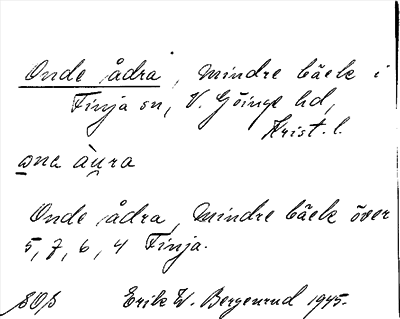 Onde ådra, mindre bäck i
Finja sn, V. Göinge hd,
Krist. l.
ɷna àu̯ra
Onde ådra, mindre bäck över
5, 7, 6, 4 Finja.
Erik W. Bergenrud 1945.